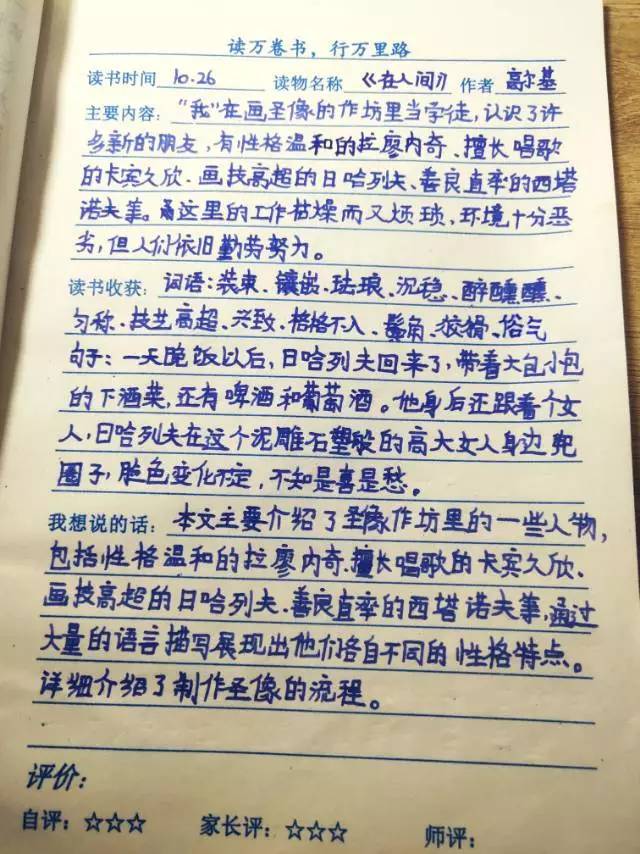 读万卷书，行万里路
读书时间 10.26 读物名称 《在人间》 作者 高尔基
主要内容："我"在画圣像的作坊里当学徒,认识了许
多新的朋友,有性格温和的拉廖内奇、擅长唱歌
的卡宾久欣、画技高超的日哈列夫、善良直率的西塔
诺夫等。这里的工作枯燥而又烦琐,环境十分恶
劣,但人们依旧勤劳努力。
读书收获：词语:装束、镶嵌、珐琅、沉稳、醉醺醺、
匀称、技艺高超、兴致、格格不入、鬓角、狡猾、俗气
句子:一天晚饭以后,日哈列夫回来了,带着大包小包
的下酒菜,还有啤酒和葡萄酒。他身后还跟着个女
人,日哈列夫在这个泥雕石塑般的高大女人身边兜
圈子,脸色变化不定,不知是喜是愁。
我想说的话：本文主要介绍了圣像作坊里的一些人物,
包括性格温和的拉廖内奇、擅长唱歌的卡宾久欣、
画技高超的日哈列夫、善良直率的西塔诺夫等,通过
大量的语言描写展现出他们各自不同的性格特点。
详细介绍了制作圣像的流程。
评价：
自评：☆☆☆ 家长评：☆☆☆ 师评：